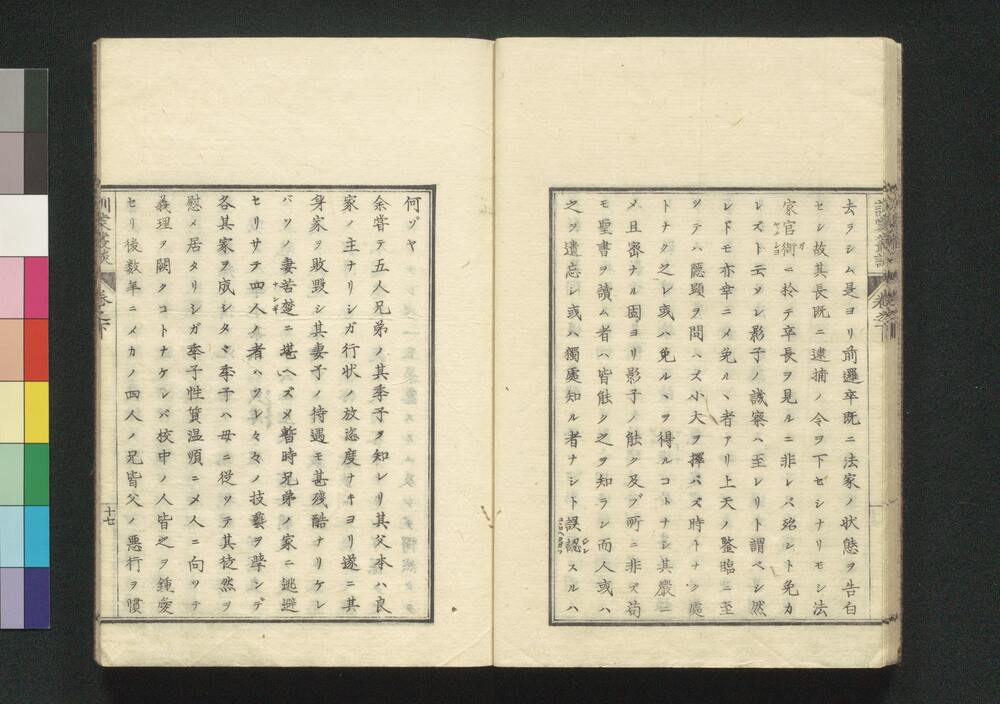 去ラシム是ヨリ前邏卒既ニ法家ノ状態ヲ告白
セシ故其長既ニ逮捕ノ令ヲ下セシナリモシ法
家官衙ニ於テ卒長ヲ見ルニ非レバ殆シト免カ
レズト云ソレ影子ノ誠察ヘ至レリト謂ベシ然
レドモ亦幸ニメ免ルヽ者アリ上天ノ鑒臨ニ至
ツテハ隱顕ヲ問ハズ小大ヲ擇バズ時トナク處
トナク之レ或ハ免ルヽヲ得ルコトナシ其嚴ニ
メ且密ナル固ヨリ影子ノ能ク及ブ所ニ非ズ苟
モ聖書ヲ讀ム者ハ皆能ク之ヲ知ラン而人或ハ
之ヲ遺忘シ或ハ獨處知ル者ナシト誤認スルハ
何ゾヤ
余嘗テ五人兄弟ノ其季子ヲ知レリ其父本ハ良
家ノ主ナリシガ行状ノ放恣度ナキヨリ遂ニ其
身家ヲ敗毀シ其妻子ノ待遇モ甚殘酷ナリケレ
バソノ妻苦楚ニ堪ヘズメ暫時兄弟ノ家ニ逃避
セリサテ四人ノ者ハソレ々々ノ技藝ヲ學ンデ
各其家ヲ成シタレ季子ハ母ニ従ツテ其徒然ヲ
慰メ居タリシガ季子性質温順ニメ人ニ向ツテ
義理ヲ闕クコトナケレバ挍中ノ人皆之ヲ鍾愛
セリ後数年ニメカノ四人ノ兄皆父ノ悪行ヲ慣
十七